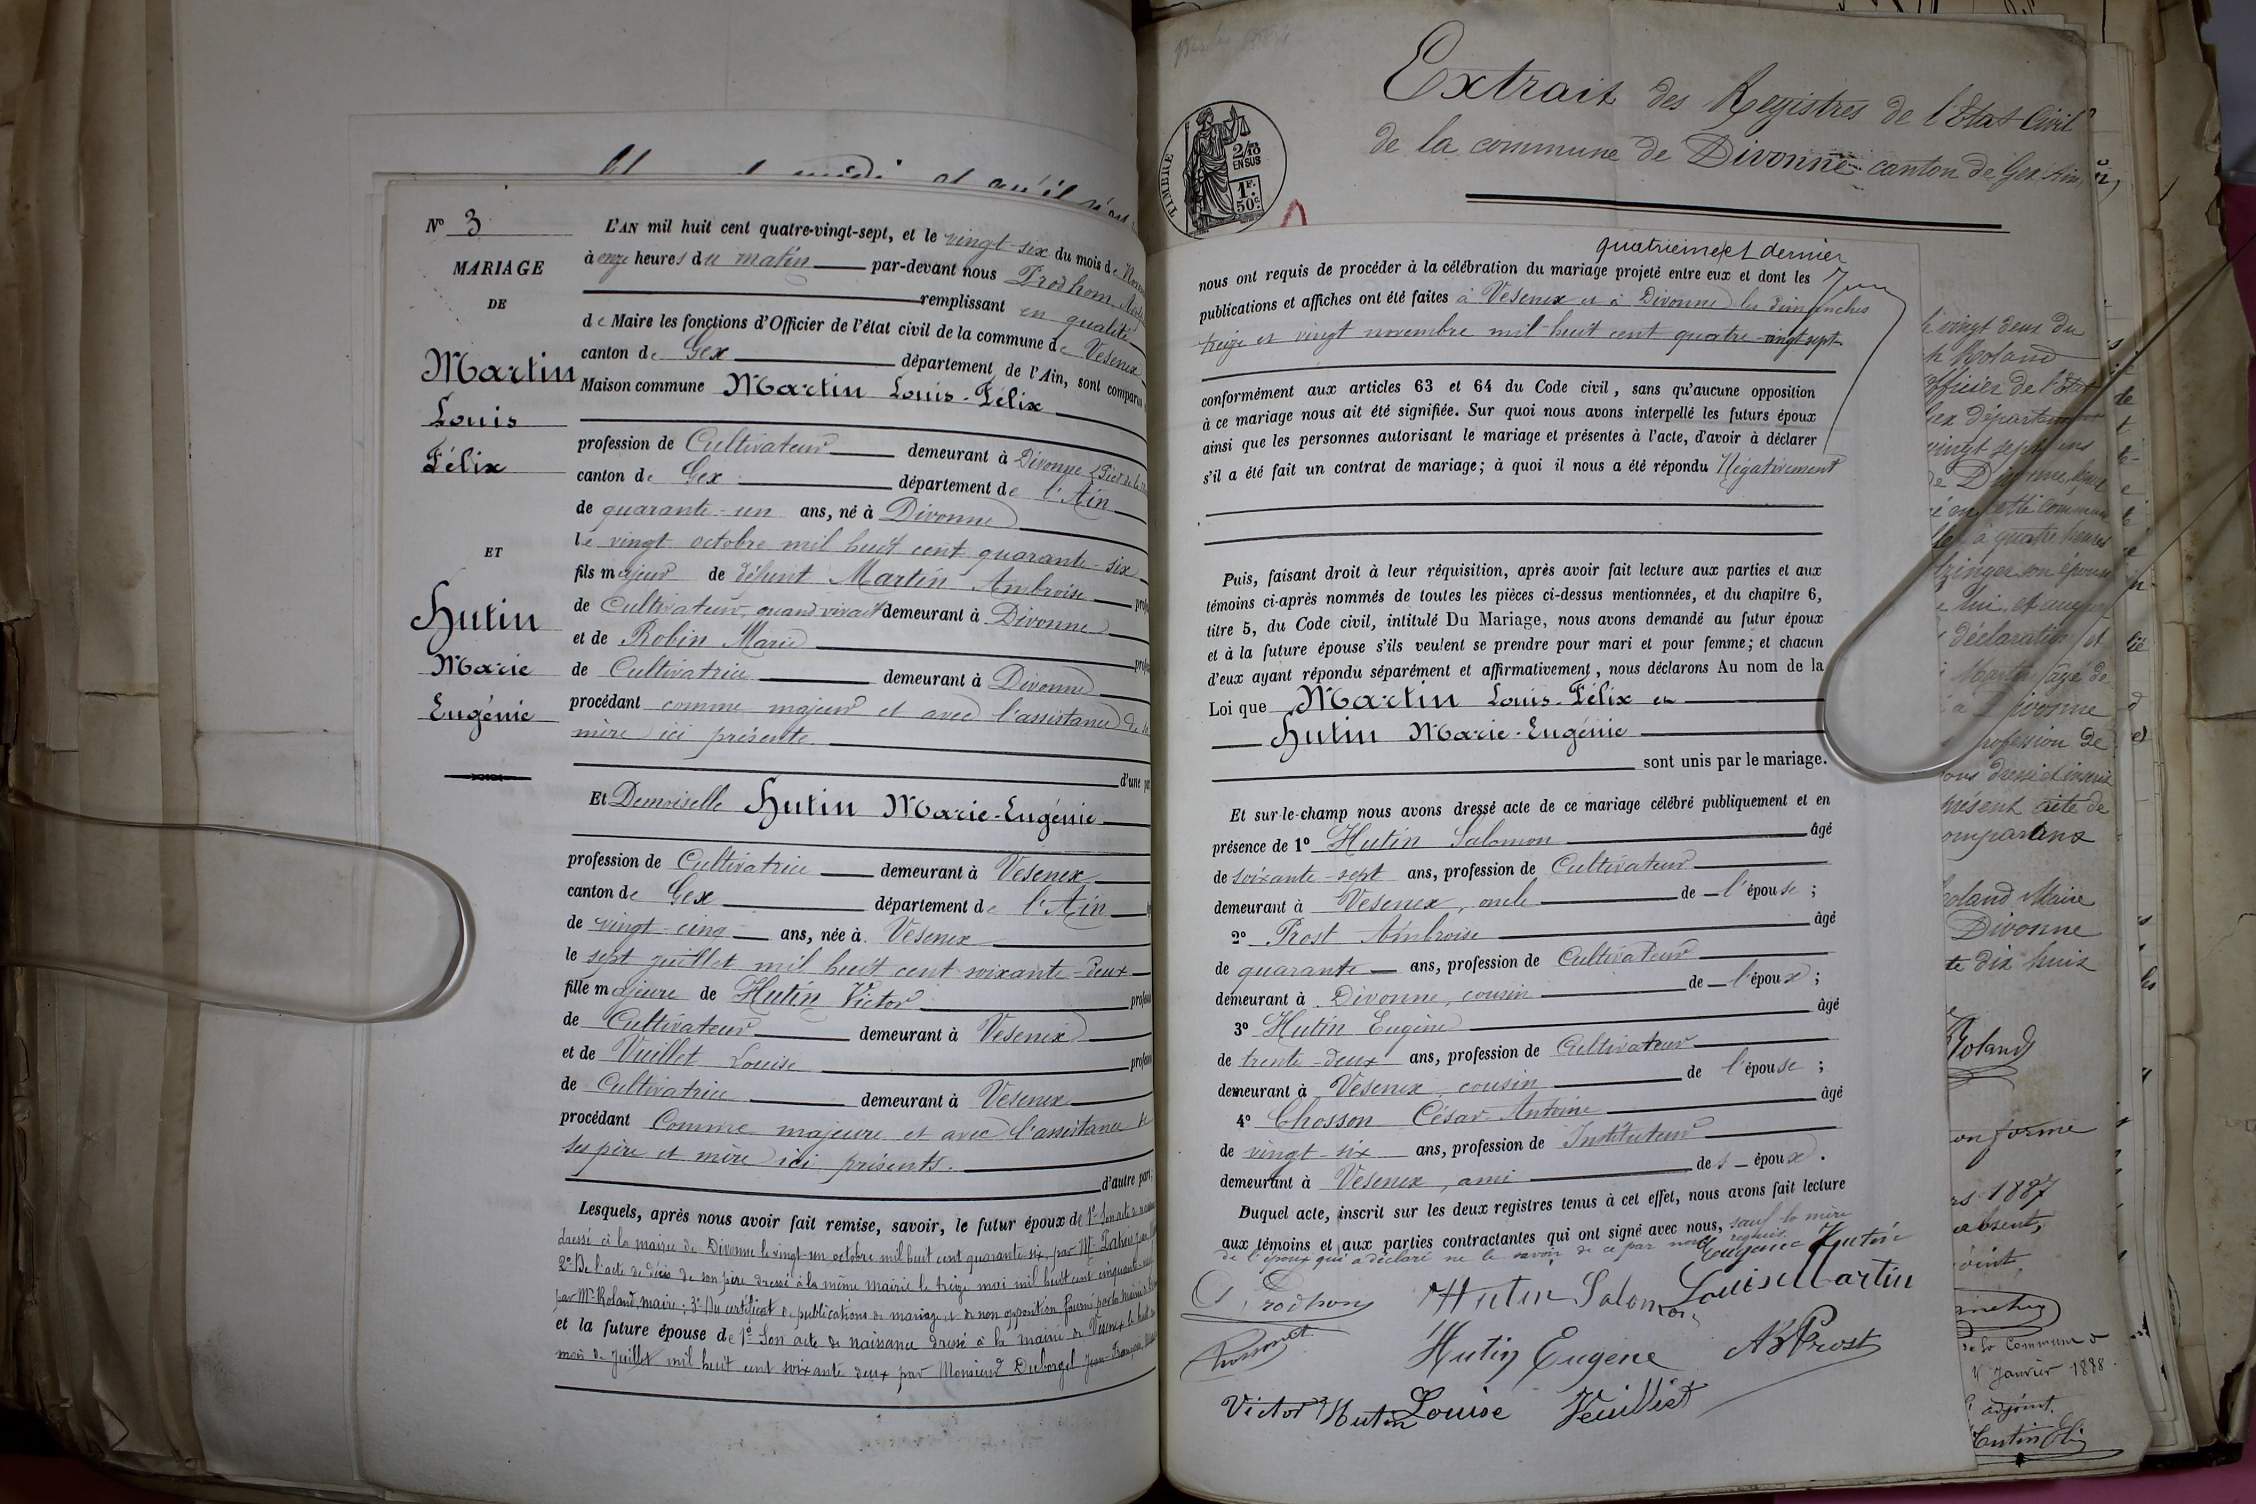 N° 3
MARIAGE
DE
Martin
Louis
Félix
ET
Hutin
Marie
Eugénie
L'AN mil huit cent quatre-vingt-sept, et le vingt-six du mois de
à onze heures du matin par-devant nous Prodhom
remplissant en qualité
de Maire les fonctions d'Officier de l'état civil de la commune de Vesenex
canton de Gex département de l'Ain, sont comparus
Maison commune Martin Louis-Félix
profession de Cultivateur demeurant à Divonne
canton de Gex département de l'Ain
de quarante-un ans, né à Divonne
le vingt octobre mil huit cent quarante-six
fils majeur de défunt Martin Ambroise
de Cultivateur, quand vivait demeurant à Divonne
et de Robin Marie
de Cultivatrice demeurant à Divonne
procédant comme majeur et avec l'assistance de sa
mère ici présente.
d'une
Et Demoiselle Hutin Marie-Eugénie
profession de Cultivatrice demeurant à Vesenex
canton de Gex département de l'Ain
de vingt-cinq ans, née à Vesenex
le sept juillet mil huit cent soixante-deux
fille majeure de Hutin Victor
de Cultivateur demeurant à Vesenex
et de Vuillet Louise
de Cultivatrice demeurant à Vesenex
procédant Comme majeure et avec l'assistance de
ses père et mère ici présents.
d'autre part;
Lesquels, après nous avoir fait remise, savoir, le futur époux de 1° Son acte de
dressé à la mairie de Divonne le vingt-un octobre mil huit cent quarante six, par Mr
2° De l'acte de décès de son père dressé à la même mairie le treize mai mil huit cent cinquante
par Mr Roland, maire; 3° Du certificat de publications de mariage et de non opposition fourni par la mairie de
et la future épouse de 1° Son acte de naissance dressé à la mairie de Vesenex le huit du
mois de Juillet mil huit cent soixante deux par Monsieur Duborgel Jean-François
Extrait des Registres de l'Etat Civil
de la commune de Divonne canton de Gex Ain
TIMBRE
2/10
EN SUS
1F.
50c.
quatrième et dernier
nous ont requis de procéder à la célébration du mariage projeté entre eux et dont les
publications et affiches ont été faites à Vesenex et à Divonne les dimanches
treize et vingt novembre mil huit cent quatre-vingt sept
conformément aux articles 63 et 64 du Code civil, sans qu'aucune opposition
à ce mariage nous ait été signifiée. Sur quoi nous avons interpellé les futurs époux
ainsi que les personnes autorisant le mariage et présentes à l'acte, d'avoir à déclarer
s'il a été fait un contrat de mariage; à quoi il nous a été répondu Négativement
Puis, faisant droit à leur réquisition, après avoir fait lecture aux parties et aux
témoins ci-après nommés de toutes les pièces ci-dessus mentionnées, et du chapitre 6,
titre 5, du Code civil, intitulé Du Mariage, nous avons demandé au futur époux
et à la future épouse s'ils veulent se prendre pour mari et pour femme; et chacun
d'eux ayant répondu séparément et affirmativement, nous déclarons Au nom de la
Loi que Martin Louis-Félix et
Hutin Marie-Eugénie
sont unis par le mariage.
Et sur-le-champ nous avons dressé acte de ce mariage célébré publiquement et en
présence de 1° Hutin Salomon âgé
de soixante-sept ans, profession de Cultivateur
demeurant à Vesenex, oncle de l'épouse;
2° Prost Ambroise âgé
de quarante ans, profession de Cultivateur
demeurant à Divonne, cousin de l'époux;
3° Hutin Eugène âgé
de trente-deux ans, profession de Cultivateur
demeurant à Vesenex cousin de l'épouse;
4° Chosson César-Antoine âgé
de vingt-six ans, profession de Instituteur
demeurant à Vesenex, ami des époux.
Duquel acte, inscrit sur les deux registres tenus à cet effet, nous avons fait lecture
aux témoins et aux parties contractantes qui ont signé avec nous, sauf la mère
de l'époux qui a déclaré ne le savoir de ce par nous requis.
Eugénie Hutin
Prodhom Hutin Salomon Louis Martin
Chosson Hutin Eugène A Prost
Victor Hutin Louise Veuilliet
vingt deux du
Roland
officier de l'Etat
Gex département
vingt sept ans
de Divonne
en cette commune
à quatre heures
son épouse
déclaration et
Martin âgé de
à Divonne
profession de
dressé et inscrit
présent acte de
comparans
Roland Maire
Divonne
dix huit
Roland
conforme
1887
absent,
adjoint,
de la Commune
Janvier 1888.
adjoint.
Hutin